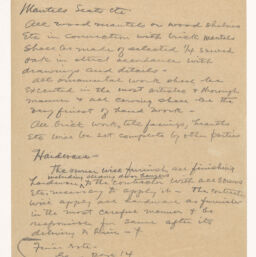 Mantels Seats etc
All wood mantel or wood shelves
Etc in connection with brick mantels
Shall be made of selected 1/4 sawed
oak in strict accordance with
drawings and details -
All ornamental work shall be
Executed in the most artistic & thorough
manner & all carving shall be the
very finest of hand work -
All brick work, tile facings, hearths
Etc will be set complete by other parties
Hardware -
The owner will furnish all finishing
including sliding door hangers
hardware to the contractor with all screws
Etc necessary to apply it - The contractor
will apply all hardware as furnished
in the most careful manner & be
responsible for same after its
delivery to him - 
Finis Note -
Page 14